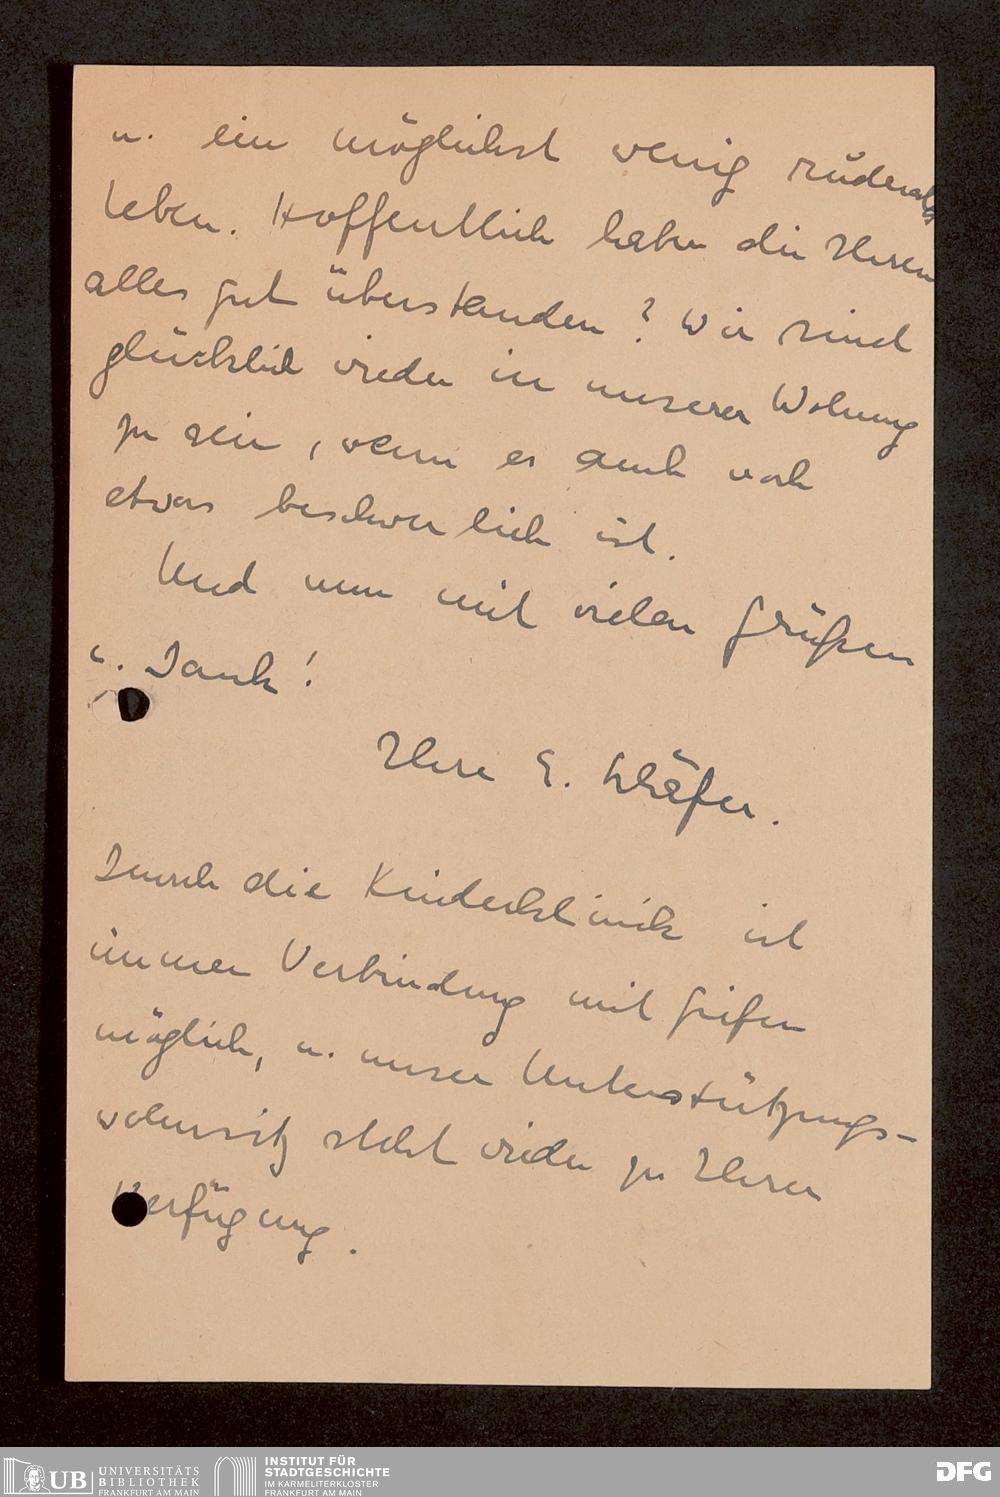 u. ein möglichst wenig ruderales
Leben. Hoffentlich haben die Ihren
alles gut überstanden? Wir sind
glücklich wieder in unserer Wohnung
zu sein, wenn es auch noch
etwas beschwerlich ist.
Und nun mit vielen Grüßen
u. Dank!
Ihre E. Schäfer.
Durch die Kinderklinik ist
immer Verbindung mit
möglich, u. unser Unterstützungs-
wohnsitz steht wieder zu Ihrer
Verfügung.
UB UNIVERSITÄTS
BIBLIOTHEK
FRANKFURT AM MAIN
INSTITUT FÜR
STADTGESCHICHTE
IM KARMELITERKLOSTER
FRANKFURT AM MAIN
DFG